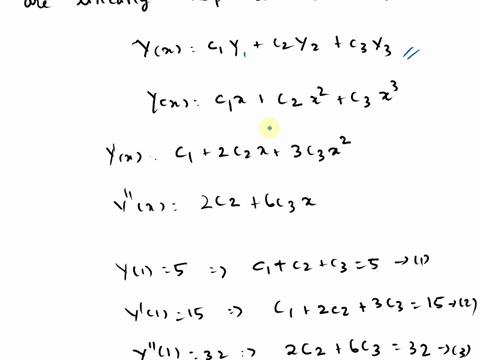 are linearly
Y(x) : C1Y1 + C2Y2 + C3Y3 //
Y(x) : C1x + C2x² + C3x³
Y'(x) : C1 + 2C2x + 3C3x²
Y''(x) : 2C2 + 6C3x
Y(1) = 5 => C1 + C2 + C3 = 5 →(1)
Y'(1) = 15 => C1 + 2C2 + 3C3 = 15 →(2)
Y''(1) = 32 => 2C2 + 6C3 = 32 →(3)